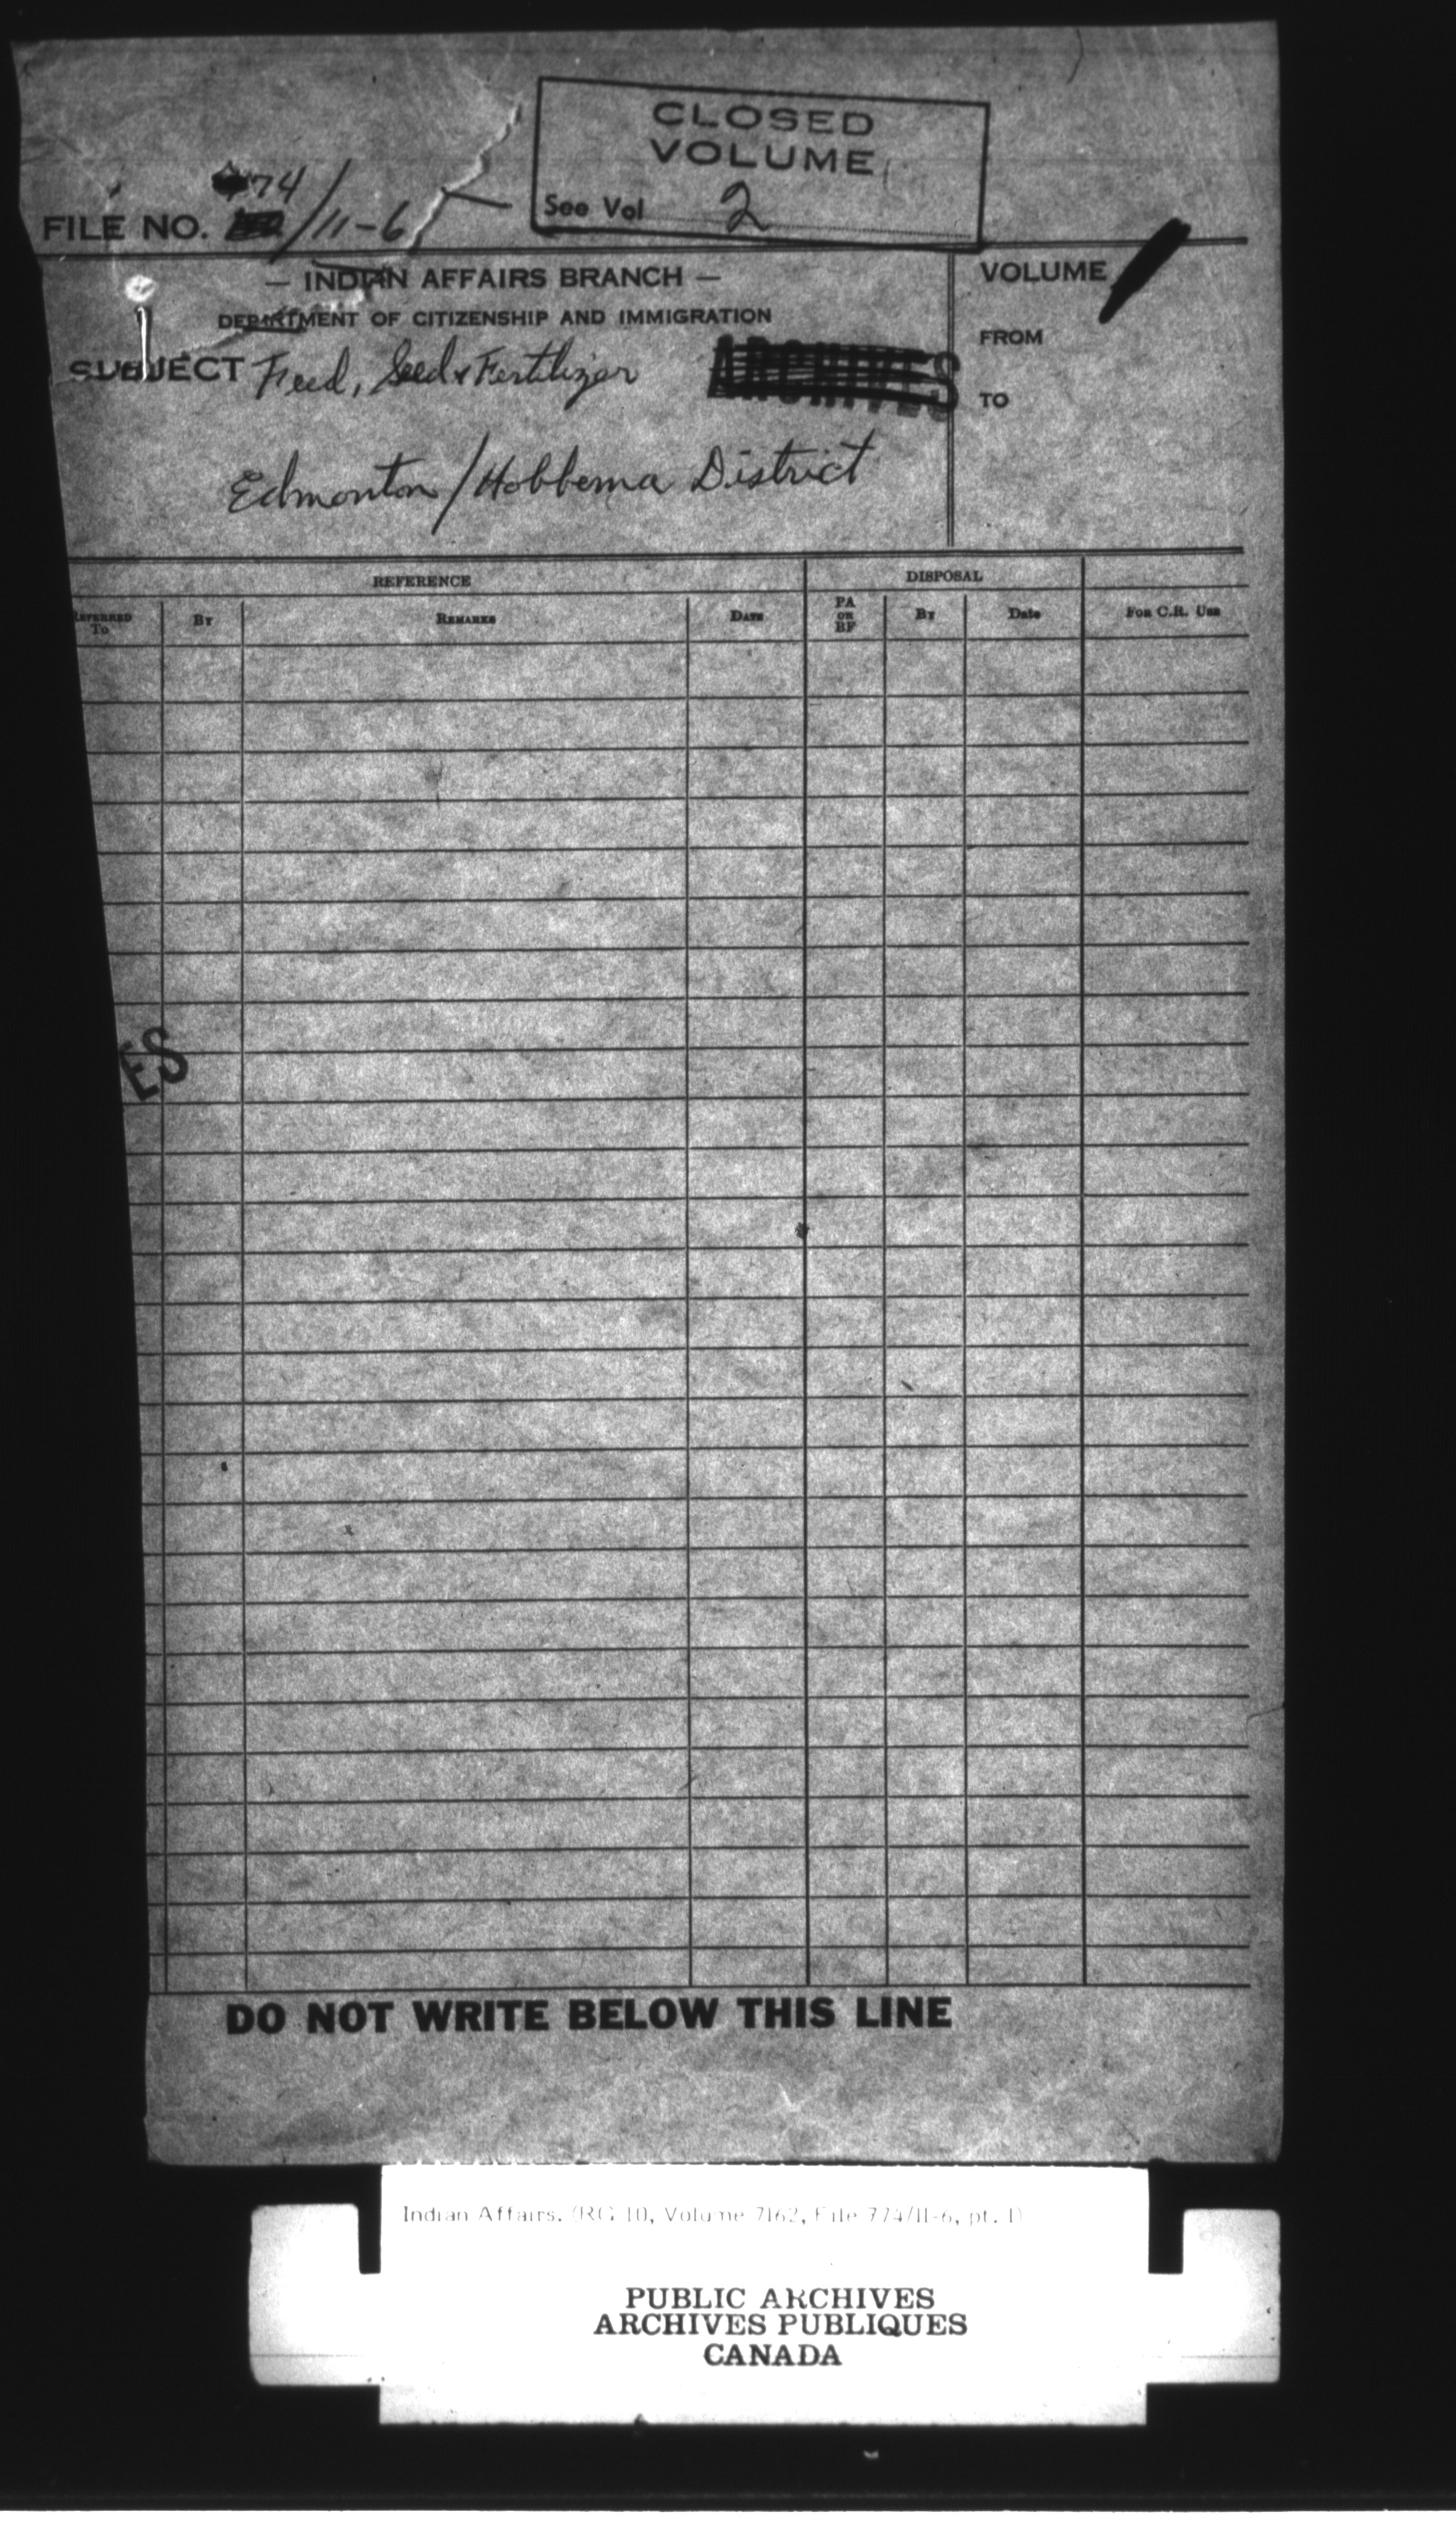 CLOSED
VOLUME
See Vol 2
FILE NO. 774/11-6
— INDIAN AFFAIRS BRANCH —
DEPARTMENT OF CITIZENSHIP AND IMMIGRATION
VOLUME
FROM
TO
SUBJECT Feed, Seed & Fertilizer
ARCHIVES
Edmonton/Hobbema District
REFERENCE
DISPOSAL
REFERRED TO
BY
REMARKS
DATE
PA OR BF
BY
Date
FOR C.R. USE
ES
DO NOT WRITE BELOW THIS LINE
Indian Affairs. (RG 10, Volume 7162, File 774/11-6, pt. 1)
PUBLIC ARCHIVES
ARCHIVES PUBLIQUES
CANADA